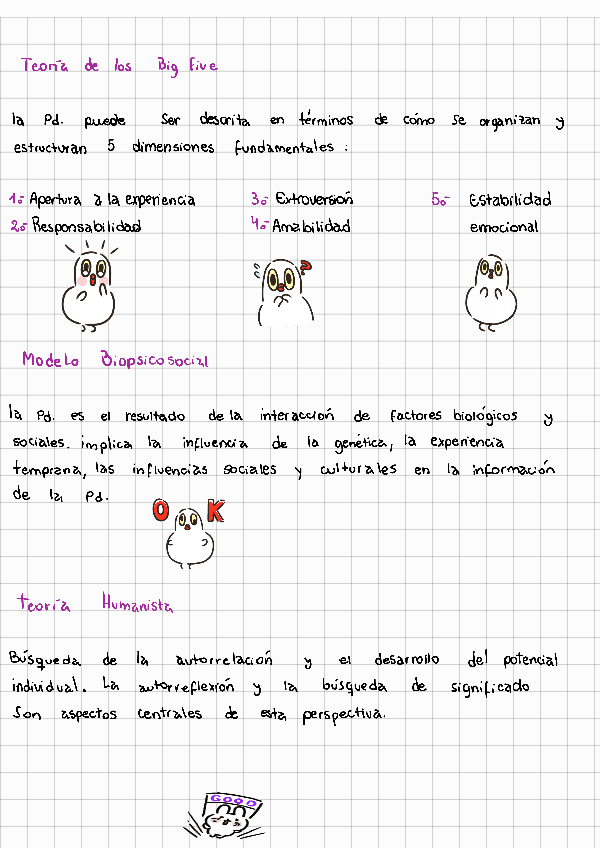 Teoría de los Big Five
la Pd. puede ser descrita en términos de cómo se organizan y
estructuran 5 dimensiones fundamentales :
1º- Apertura a la experiencia
2º- Responsabilidad
3º- Extroversión
4º- Amabilidad
5º- Estabilidad
emocional
?
Modelo Biopsicosocial
la Pd. es el resultado de la interacción de factores biológicos y
sociales. implica la influencia de la genética, la experiencia
temprana, las influencias sociales y culturales en la información
de la Pd.
O K
teoría Humanista
Búsqueda de la autorrelación y el desarrollo del potencial
individual. La autorreflexión y la búsqueda de significado
Son aspectos centrales de esta perspectiva.
GOOD